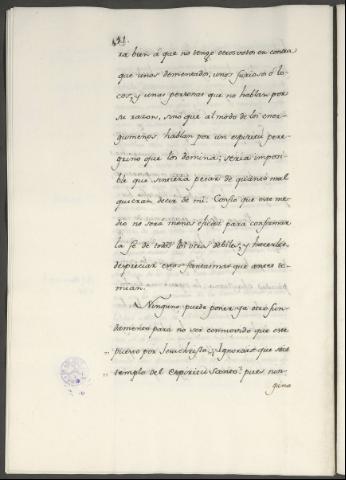 421.
ra bien à que no tengo otros votos en contra
que unos dementados, unos furiosos ó lo-
cos, y unas personas que no hablan por
su razon, sino que al modo de los ener-
gumenos hablan por un espiritu pere-
grino que los domina; seria imposi-
ble que sintiera pesar de quanto mal
quieran decir de mi. Confio que este me-
dio no sera menos eficaz para confirmar
la fé de todos los otros debiles, y hacerles
despreciar esos fantasmas que antes te-
mian.
Ninguno puede poner ya otro fun-
damento para no ser conmovido que este
" puesto por Jesuchristo. ¿Ignorais que sois
" templo del espiritu Santo? pues nin-
guno